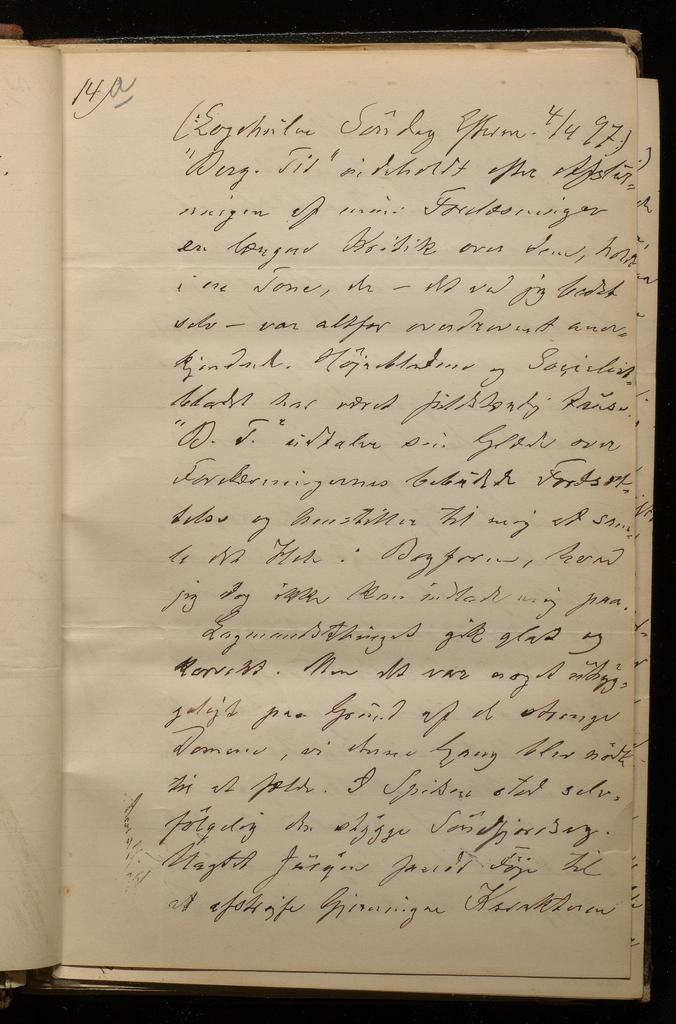 14 a
(: Søndag Efterm. 4/4 97.)
"Berg. Tid" indeholdt efter Afslut-
ningen af mine Forelæsninger
en længere Kritik over dem, holdt
i en Tone, der – det ved jeg bedst
selv – var altfor overdrevent aner-
kjendende. Højrebladene og Socialist-
bladet har været fuldstændig tause.
"B. T." udtaler sin Glæde over
Forelæsningernes bebudede Fortsæt-
telse og henstiller til mig at sam-
le det Hele i Bogform, hvad
jeg dog ikke kan indlade mig paa.
Lagmandsthinget gik glat og
korrekt. Men det var noget uhyg-
geligt paa Grund af de strenge
Domme, vi denne Gang blev nødte
til at fælde. I Spidsen stod selv-
følgelig den stygge Søndfjordsag.
Uagtet Juryen fandt Føje til
at afstryge Gjerningens Karakteren